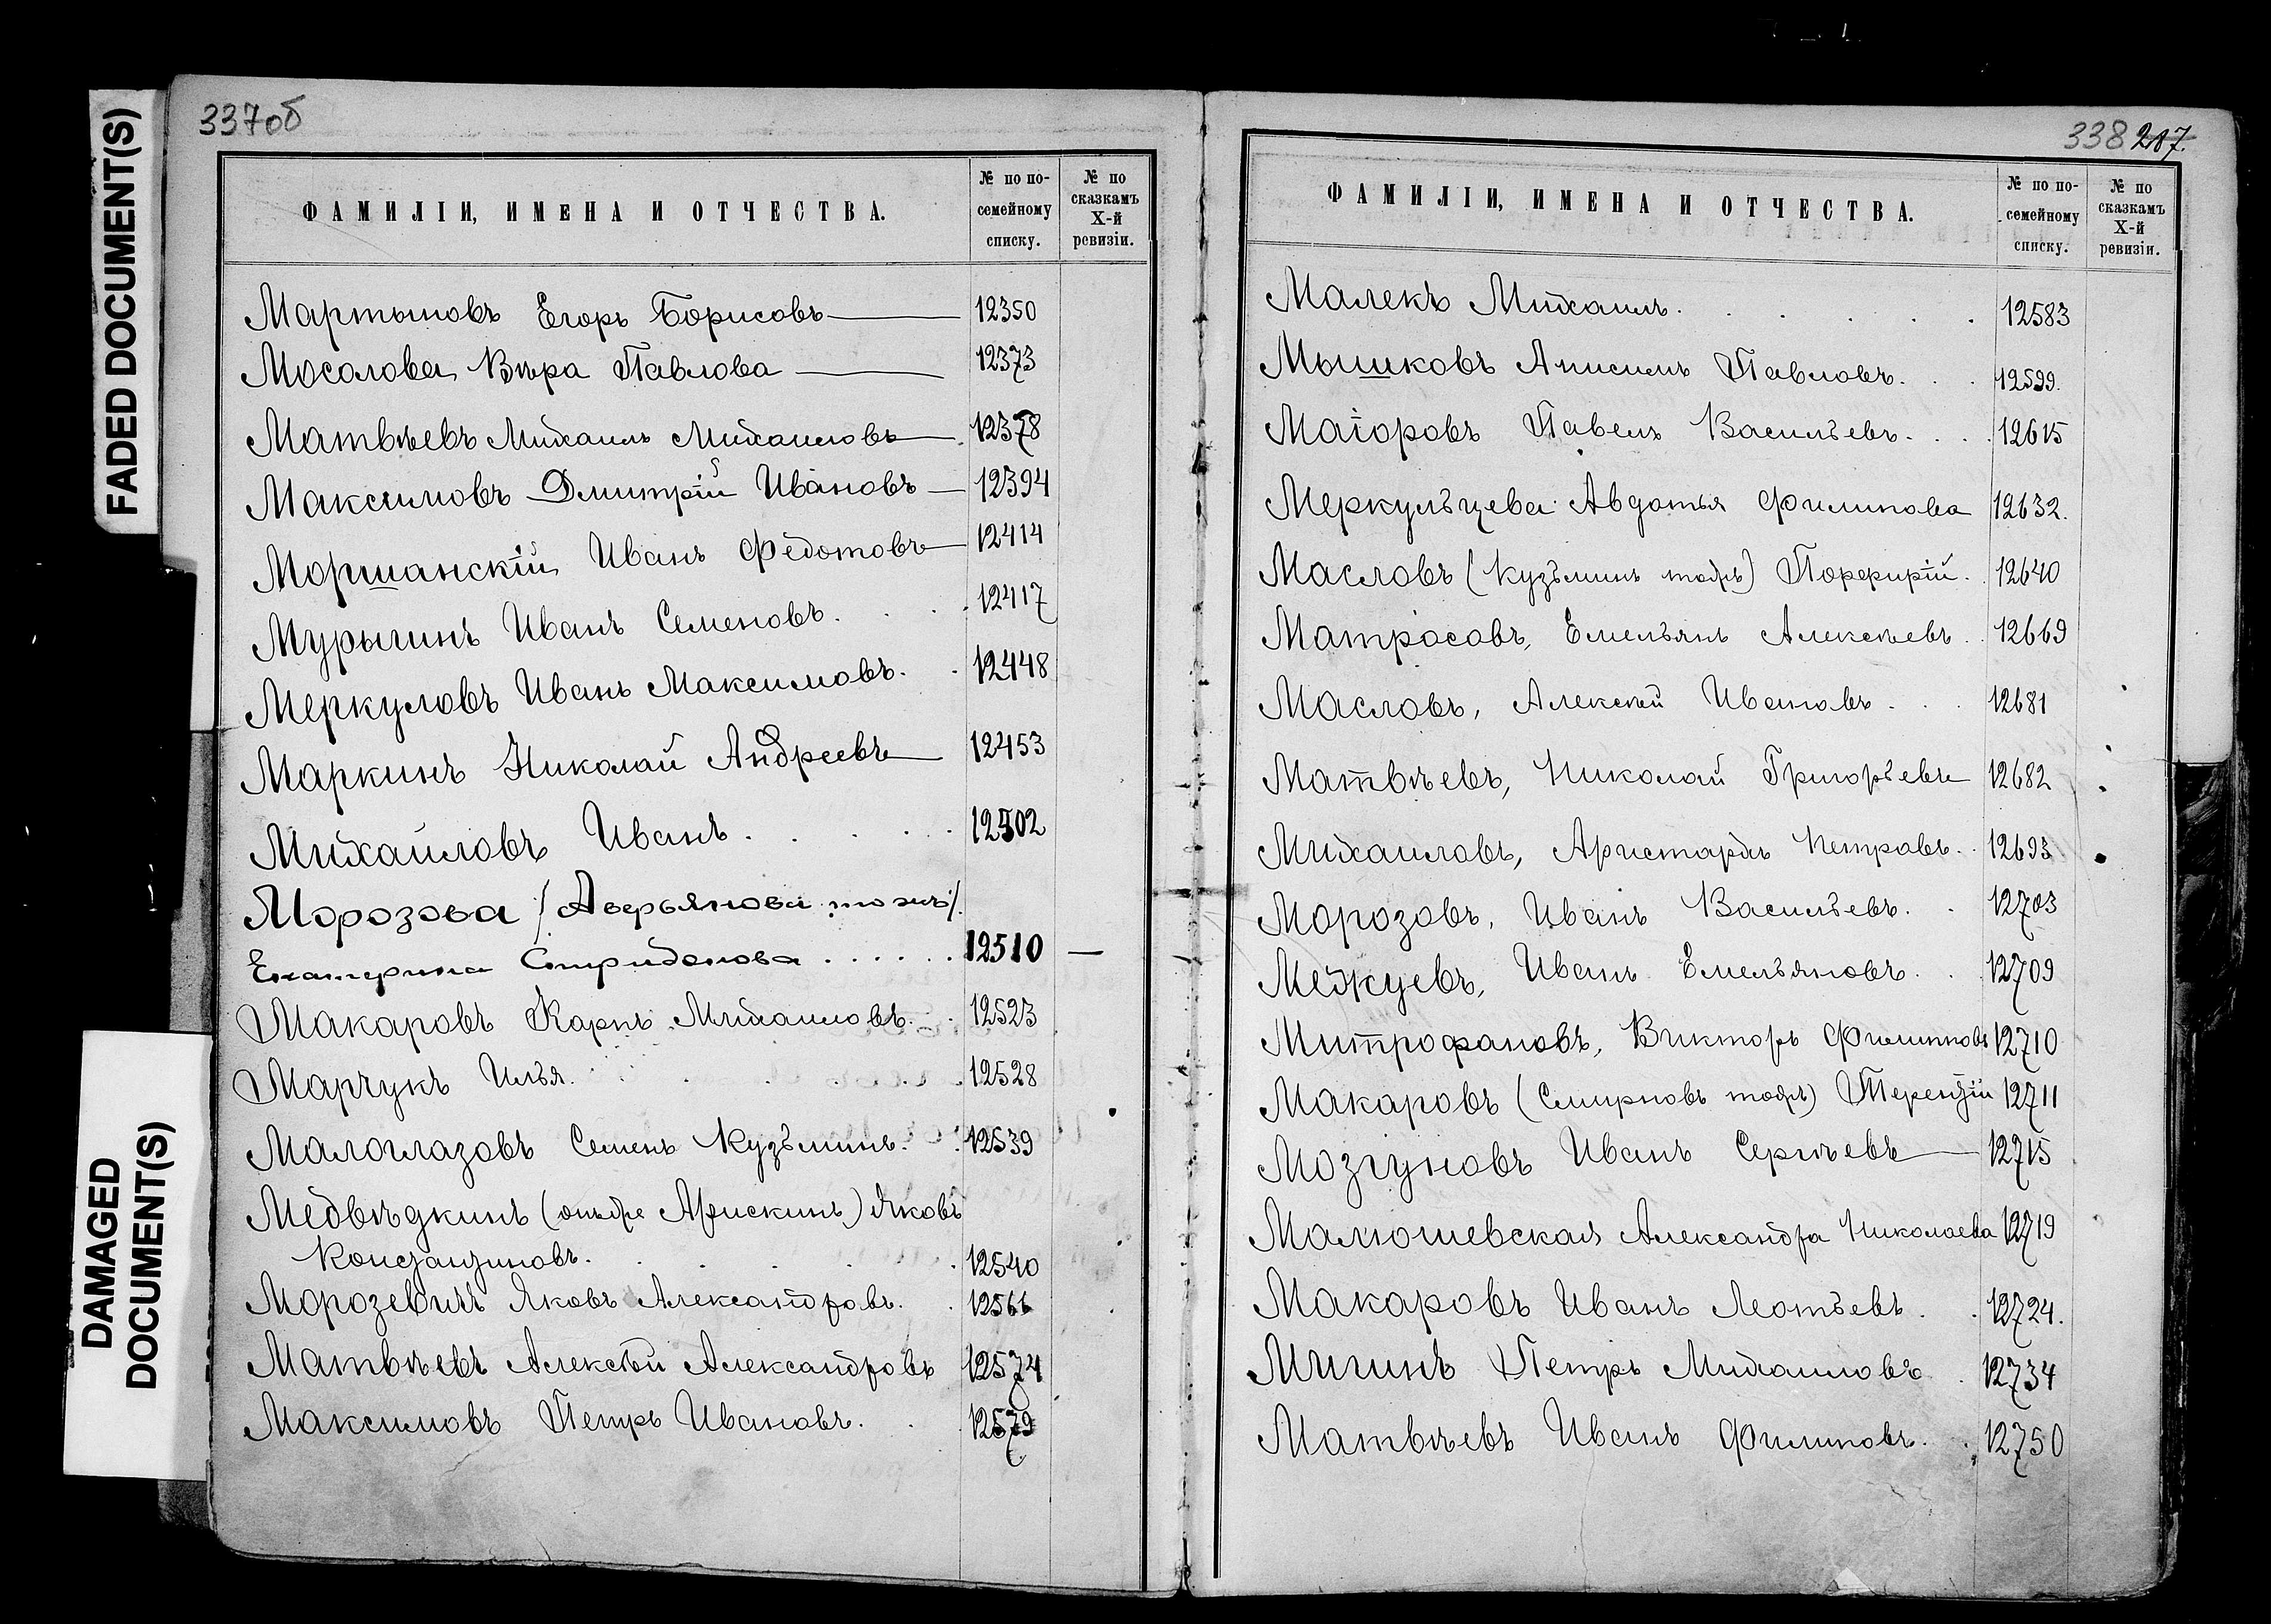 FADED DOCUMENT(S)
DAMAGED
DOCUMENT(S)
337об
ФАМИЛІИ, ИМЕНА И ОТЧЕСТВА.
№ по по-
семейному
списку.
№ по
сказкамъ
X-й
ревизіи.
Мартыновъ Егоръ Борисовъ 12350
Мосолова Вѣра Павлова 12373
Матвѣевъ Михаилъ Михаиловъ 12378
Максимовъ Дмитрій Ивановъ 12394
Моршанскій Иванъ Федотовъ 12414
Мурыгинъ Иванъ Семеновъ. 12417
Меркуловъ Иванъ Максимовъ. 12448
Маркинъ Николай Андреевъ 12453
Михайловъ Иванъ. 12502
Морозова /Аверьянова тожъ/.
Екатерина Спиридонова 12510 —
Макаровъ Карпъ Михаиловъ. 12523
Марчукъ Илья. 12528
Малоглазовъ Семенъ Кузьминъ. 12539
Медвѣдкинъ (онъже Арискинъ) Яковъ
Константиновъ. 12540
Морозевичъ Яковъ Александровъ. 12566
Матвѣевъ Алексѣй Александровъ 12574
Максимовъ Петръ Ивановъ. 12579
338 287.
ФАМИЛІИ, ИМЕНА И ОТЧЕСТВА.
№ по по-
семейному
списку.
№ по
сказкамъ
X-й
ревизіи.
Малекъ Михаилъ. 12583
Мышковъ Анисимъ Павловъ. 12599.
Маіоровъ Павелъ Васильевъ. 12615
Меркульцева Авдотья Филипова 12632.
Масловъ (Кузьминъ тожъ) Порфирій. 12640
Матросовъ, Емельянъ Алексѣевъ. 12669
Масловъ, Алексѣй Ивановъ. 12681
Матвѣевъ, Николай Григорьевъ 12682
Михаиловъ, Аристархъ Петровъ. 12693
Морозовъ, Иванъ Васильевъ. 12703
Межуевъ, Иванъ Емельяновъ. 12709
Митрофановъ, Викторъ Филипповъ 12710
Макаровъ (Смирновъ тожъ) Терентій 12711
Мозгуновъ Иванъ Сергѣевъ 12715
Малюшевская Александра Николаева 12719
Макаровъ Иванъ Леотьевъ. 12724.
Мигинъ Петръ Михаиловъ. 12734
Матвѣевъ Иванъ Филиповъ. 12750